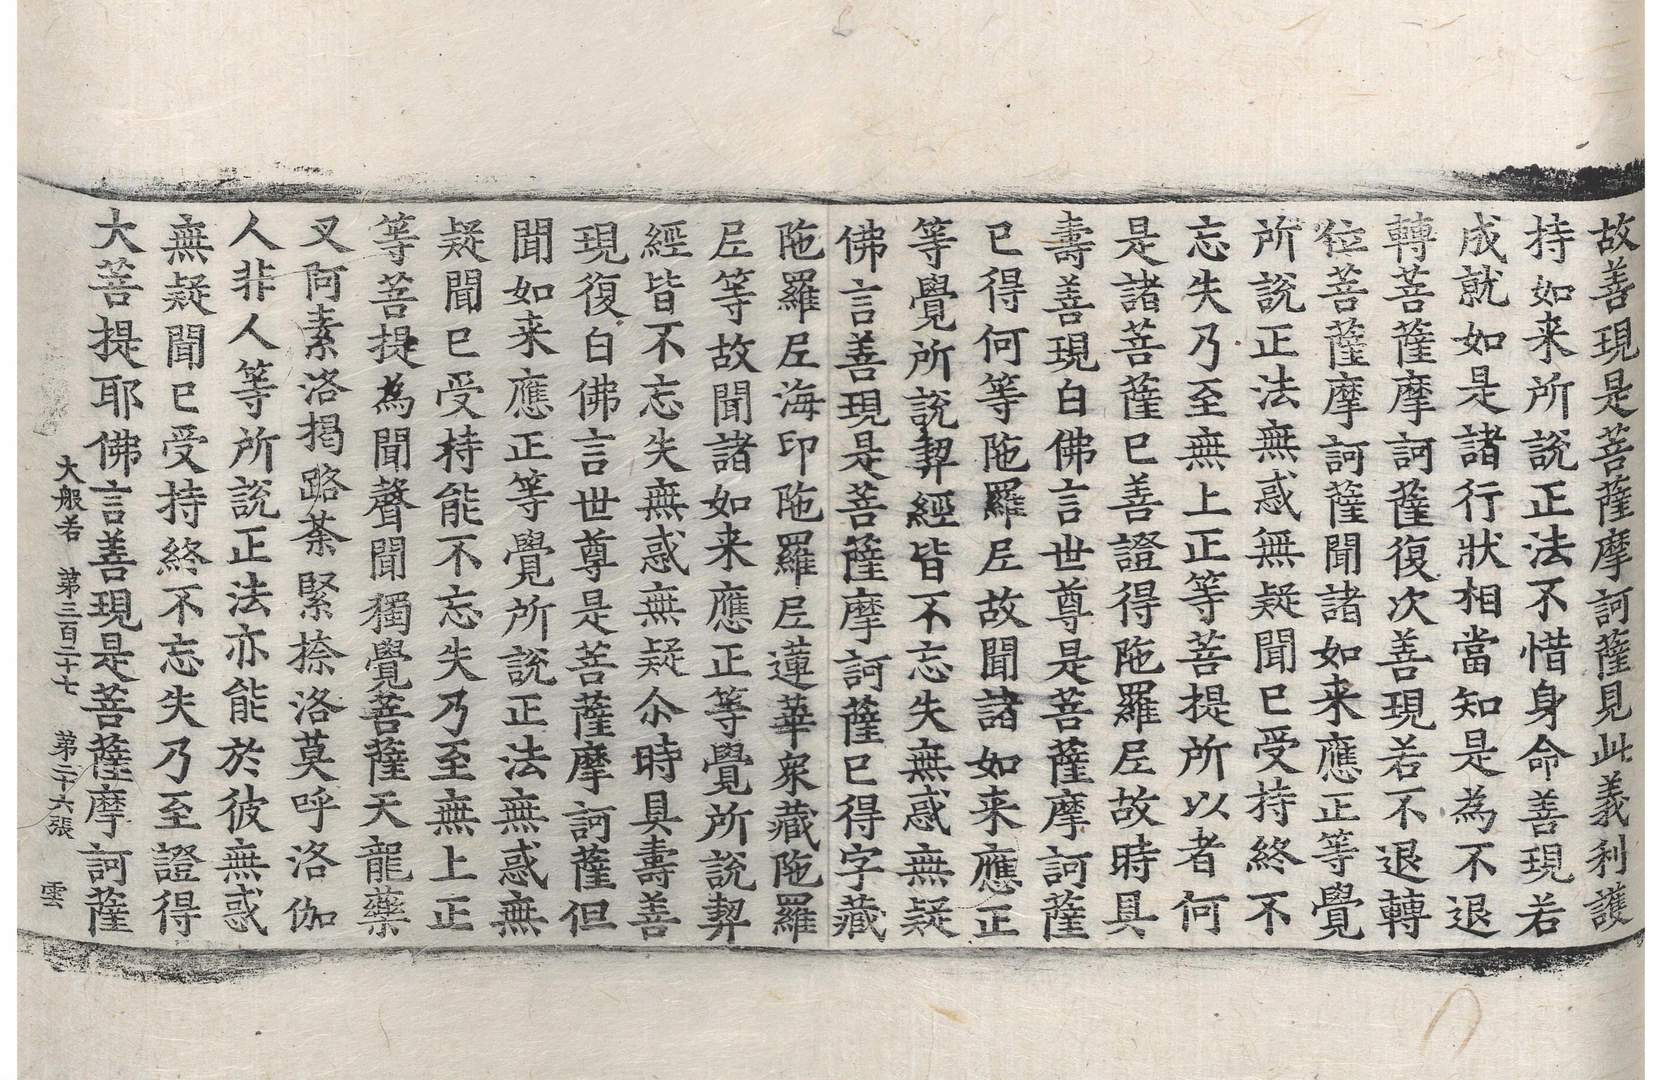 故善現是菩薩摩訶薩見此義利護
持如来所說正法不惜身命善現若
成就如是諸行狀相當知是為不退
轉菩薩摩訶薩復次善現若不退轉
位菩薩摩訶薩聞諸如来應正等覺
所說正法無惑無疑聞已受持終不
忘失乃至無上正等菩提所以者何
是諸菩薩已善證得陁羅尼故時具
壽善現白佛言世尊是菩薩摩訶薩
已得何等陁羅尼故聞諸如来應正
等覺所說契經皆不忘失無惑無疑
佛言善現是菩薩摩訶薩已得字藏
陁羅尼海印陁羅尼蓮華衆藏陁羅
尼等故聞諸如来應正等覺所說契
經皆不忘失無惑無疑尒時具壽善
現復白佛言世尊是菩薩摩訶薩但
聞如来應正等覺所說正法無惑無
疑聞已受持能不忘失乃至無上正
等菩提為聞聲聞獨覺菩薩天龍藥
叉阿素洛揭路荼緊捺洛莫呼洛伽
人非人等所說正法亦能於彼無惑
無疑聞已受持終不忘失乃至證得
大菩提耶佛言善現是菩薩摩訶薩
大般若 第三百二十七 第二十六張 雲